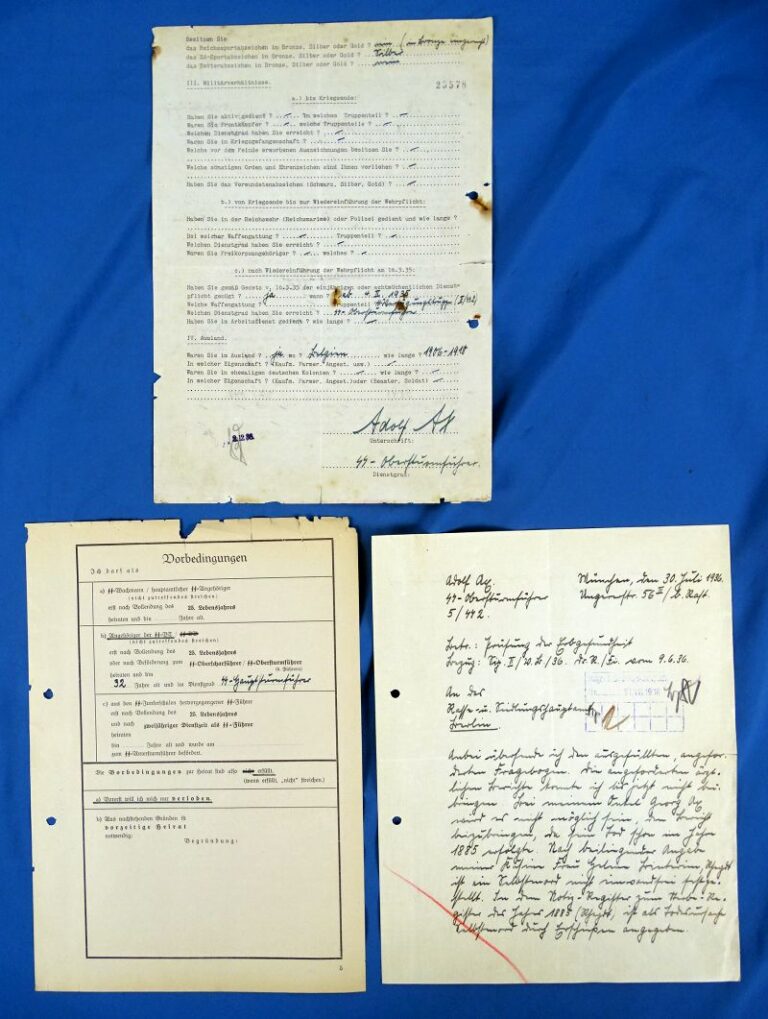 Besitzen Sie
das Reichssportabzeichen in Bronze, Silber oder Gold ? nein (in Bronze
das SA-Sportabzeichen in Bronze, Silber oder Gold ? Silber
das Reiterabzeichen in Bronze, Silber oder Gold ? nein
III. Militärverhältnisse.
23578
a.) bis Kriegsende:
Haben Sie aktiv gedient ? In welchem Truppenteil ?
Waren Sie Frontkämfer ? welche Truppenteile ?
Welchen Dienstgrad haben Sie erreicht ?
Waren Sie in Kriegsgefangenschaft ?
Welche vor dem Feinde erworbenen Auszeichnungen besitzen Sie ?
Welche sonstigen Orden und Ehrenzeichen sind Ihnen verliehen ?
Haben Sie das Verwundetenabzeichen (Schwarz, Silber, Gold) ?
b.) von Kriegsende bis zur Wiedereinführung der Wehrpflicht:
Haben Sie in der Reichswehr (Reichsmarine) oder Polizei gedient und wie lange ?
Bei welcher Waffengattung ? Truppenteil ?
Welchen Dienstgrad haben Sie erreicht ?
Waren Sie Freikorpsangehöriger ? welches ?
c.) nach Wiedereinführung der Wehrpflicht am 16.3.35:
Haben Sie gemäß Gesetz v. 16.3.35 der einjährigen oder achtwöchentlichen Dienst-
pflicht genügt ? ja wann ? 1935
Welche Waffengattung ? Truppenteil
Welchen Dienstgrad haben Sie erreicht ? SS-Obersturmführer
Haben Sie im Arbeitsdienst gedient ? wie lange ?
IV. Ausland.
Waren Sie im Ausland ? ja wo ? Belgien wie lange ? 1906-1918
In welcher Eigenschaft ? (Kaufm. Farmer. Angest. usw.)
Waren Sie in ehemaligen deutschen Kolonien ? wie lange ?
In welcher Eigenschaft ? (Kaufm. Farmer, Angest.) oder (Beamter, Soldat)
Adolf Ax
Unterschrift:
SS-Obersturmführer.
Dienstgrad:
2.12.36.
Vorbedingungen
Ich darf als
a) SS-Wachmann / hauptamtlicher SS-Angehöriger
(nicht zutreffendes streichen)
erst nach Vollendung des 25. Lebensjahres
heiraten und bin Jahre alt.
b) Angehöriger der SS-VT /
(nicht zutreffendes streichen)
erst nach Vollendung des 25. Lebensjahres
oder nach Beförderung zum SS-Oberscharführer / SS-Obersturmführer
heiraten und bin
32 Jahre alt und im Dienstgrad SS-Hauptsturmführer
c) aus den SS-Junkerschulen hervorgegangener SS-Führer
erst nach Vollendung des 25. Lebensjahres
und nach zweijähriger Dienstzeit als SS-Führer
heiraten
bin Jahre alt und wurde am
zum SS-Untersturmführer befördert.
Die Vorbedingungen zur Heirat sind also nicht erfüllt.
(wenn erfüllt, „nicht" streichen.)
a) Vorerst will ich mich nur verloben.
b) Aus nachstehenden Gründen ist
vorzeitige Heirat
notwendig:
Begründung:
5
Adolf Ax
SS-Obersturmführer
5/442.
München, den 30. Juli 1936.
Ungererstr. 56
Betr.: Prüfung der Erbgesundheit
Bezug: vom 9.6.36.
An das
Rasse- u. Siedlungshauptamt
Berlin
Anbei übersende ich den ausgefüllten, angefor-
derten Fragebogen. Die angeforderten ärzt-
lichen Berichte konnte ich bis jetzt nicht bei-
bringen. Bei meinem Onkel Georg Ax
wird es nicht möglich sein, den Bericht
beizubringen, da sein Tod schon im Jahre
1885 erfolgte. Nach beiliegender Angabe
meiner Kusine Frau Helene
ist ein Selbstmord nicht einwandfrei festge-
stellt. In dem Notiz-Register zum Sterbe-Re-
gister des Jahres 1885 ist als Todesursache
Selbstmord durch Erschießen angegeben.